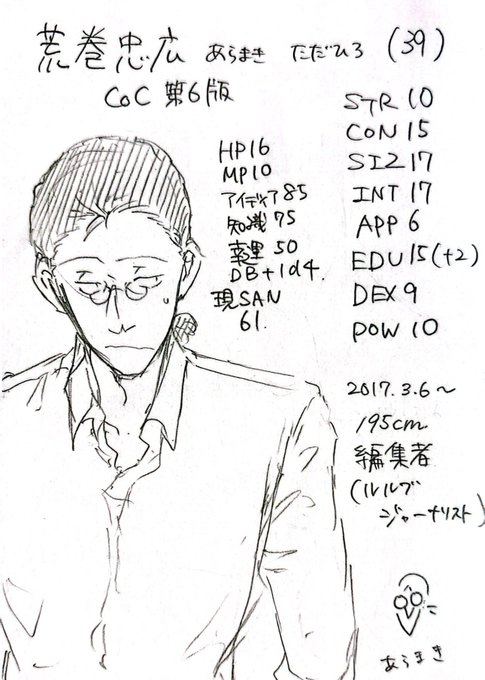 荒巻忠広 あらまき ただひろ (39)
CoC 第6版
HP16
MP10
アイディア85
知識 75
幸運 50
DB+1d4.
現SAN
61.
STR 10
CON 15
SIZ 17
INT 17
APP 6
EDU 15(+2)
DEX 9
POW 10
2017.3.6〜
195cm
編集者
(ルルブ
ジャーナリスト)
あらまき